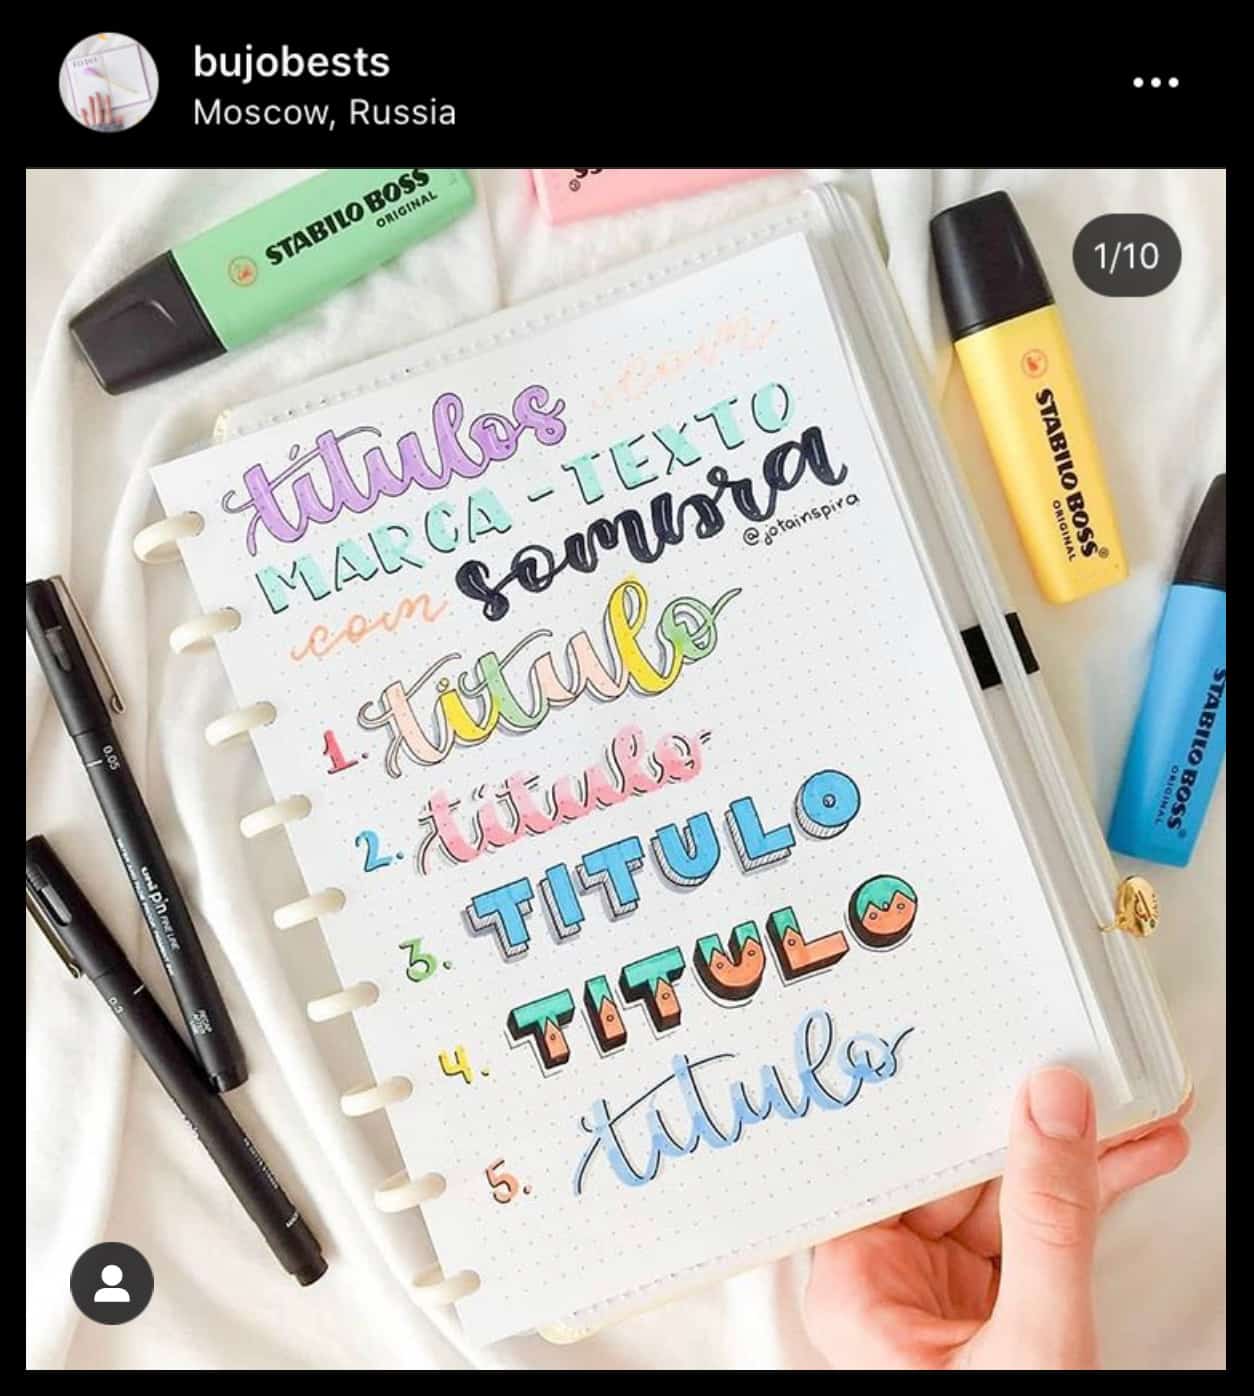 bujobests
Moscow, Russia
1/10
STABILO BOSS
ORIGINAL
títulos com
MARCA-TEXTO
com sombra
@jotainspira
1. título
2. título
3. TITULO
4. TITULO
5. título
STABILO BOSS
ORIGINAL
STABILO BOSS
ORIGINAL
0.05
uni pin FINE LINE
0.5